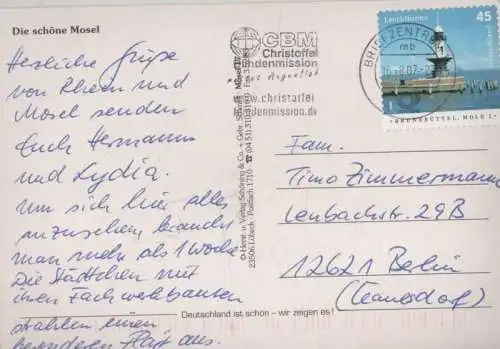 Die schöne Mosel
Herzliche Grüße
von Rhein und
Mosel senden
Euch Hermann
und Lydia.
Um sich hier alles
anzusehen, braucht
man mehr als 1 Woche
Die Städtchen mit
ihren Fachwerkbauten
strahlen einen
besonderen Flair aus.
© Herst. u. Verlag Schöning & Co. + Gebr. Schmidt
23506 Lübeck, Postfach 1710
CBM
Christoffel
lindenmission
www.christoffel
lindenmission.de
BRIEFZENTRUM
mb
Leuchttürme
45
BRUNSBÜTTEL, MOLE 1
Fam.
Timo Zimmermann
Lenbachstr. 29B
12621 Berlin
(Kaulsdorf)
Deutschland ist schön – wir zeigen es!